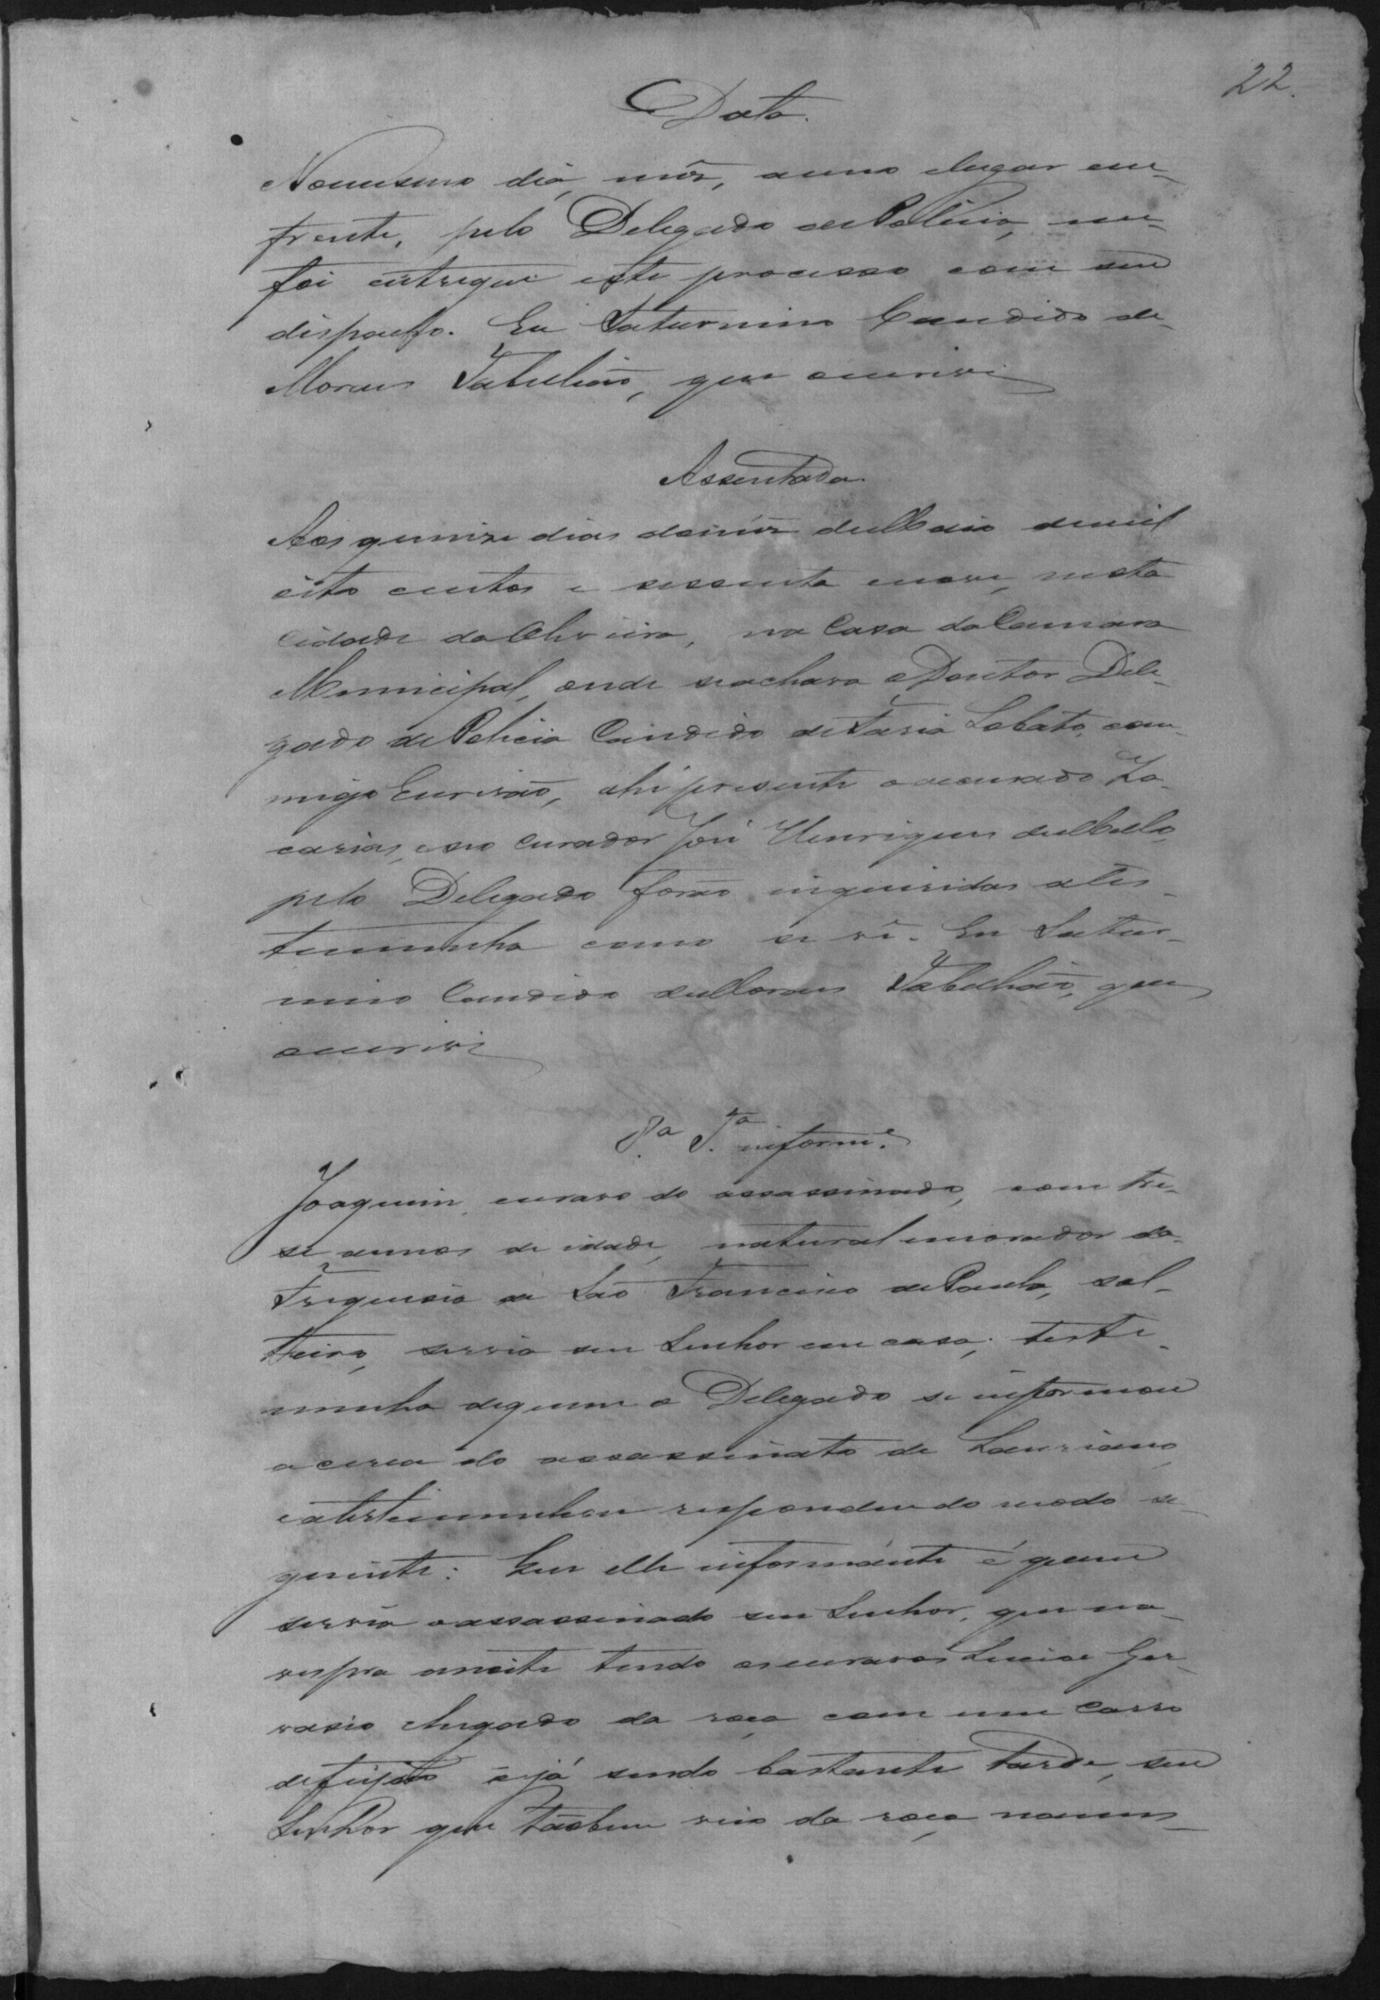 22.
Data.
No mesmo dia, mês, anno e lugar em-
frente, pelo Delegado de Policia, me-
foi entregue este processo com seu
despacho. Eu Saturnino Candido de
Moraes Tabelião, que escrevi
Assentada
Aos quinze dias do mês de Maio de mil
oito centos e sessenta e nove, nesta
Cidade da Oliveira, na Casa da Camara
Municipal, onde se achava o Doutor Dele-
gado de Policia Candido de Faria Lobato, com-
migo Escrivão, ahi presente o accusado Za-
carias, e seo Curador José Henriques de Mello,
pelo Delegado forão inquiridas a tes-
temunha como se vê. Eu Satur-
nino Candido de Moraes Tabelião, que
escrevi
8.ª T.ª inform.e
Joaquim, escravo do assassinado, com tre-
se annos de idade, natural e morador da
Freguesia de São Francisco de Paula, sol-
teiro, servia seu Senhor em casa; teste-
munha de quem o Delegado se informou
acerca do assassinato de Lauriano,
e a testemunhou respondeu do modo se-
guinte: Que elle informante é quem
servia o assassinado seu Senhor, que na
vespra a noite tendo os escravos Lucio e Ger-
vasio chegado da roça com um Carro
de feijão e já sendo bastante tarde, seu
Senhor que tãobem veio da roça nomes-